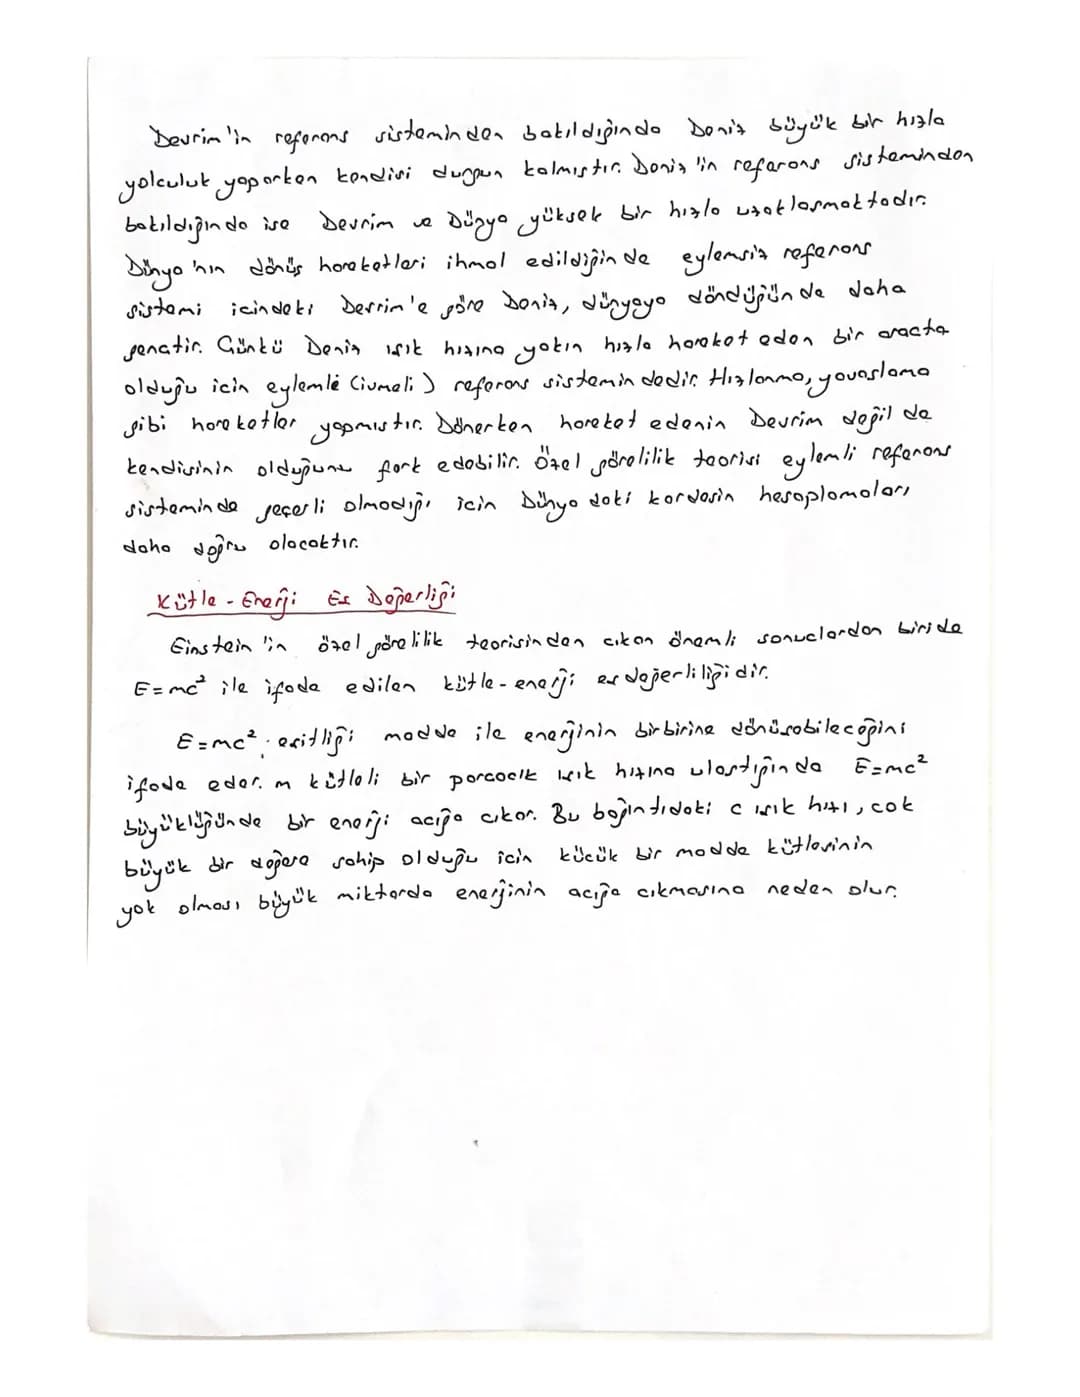 Devrim'in referans sisteminden bakıldığında Deniz büyük bir hızla
yolculuk yaparken kendisi durgun kalmıştır. Deniz'in referans sisteminden
bakıldığında ise Devrim ve Dünya yüksek bir hızla uzaklaşmaktadır.
Dünya'nın dönüş hareketleri ihmal edildiğinde eylemsiz referans
sistemi içindeki Devrim'e göre Deniz, dünyaya döndüğünde daha
gençtir. Çünkü Deniz ışık hızına yakın hızla hareket eden bir araçta
olduğu için eylemle (ivmeli) referans sistemindedir. Hızlanma, yavaşlama
gibi hareketler yapmıştır. Dönerken hareket edenin Devrim değil de
kendisinin olduğunu fark edebilir. Özel görelilik teorisi eylemli referans
sisteminde geçerli olmadığı için Dünyadaki kardeşin hesaplamaları
daha doğru olacaktır.
Kütle - Enerji Eş Değerliği
Einstein'in özel görelilik teorisinden çıkan önemli sonuçlardan biride
E=mc² ile ifade edilen kütle-enerji eş değerliliğidir.
E=mc² eşitliği madde ile enerjinin birbirine dönüşebileceğini
ifade eder. m kütleli bir parçacık ışık hızına ulaştığında E=mc²
büyüklüğünde bir enerji açığa çıkar. Bu bağıntıdaki c ışık hızı, çok
büyük bir değere sahip olduğu için küçük bir madde kütlesinin
yok olması büyük miktarda enerjinin açığa çıkmasına neden olur.